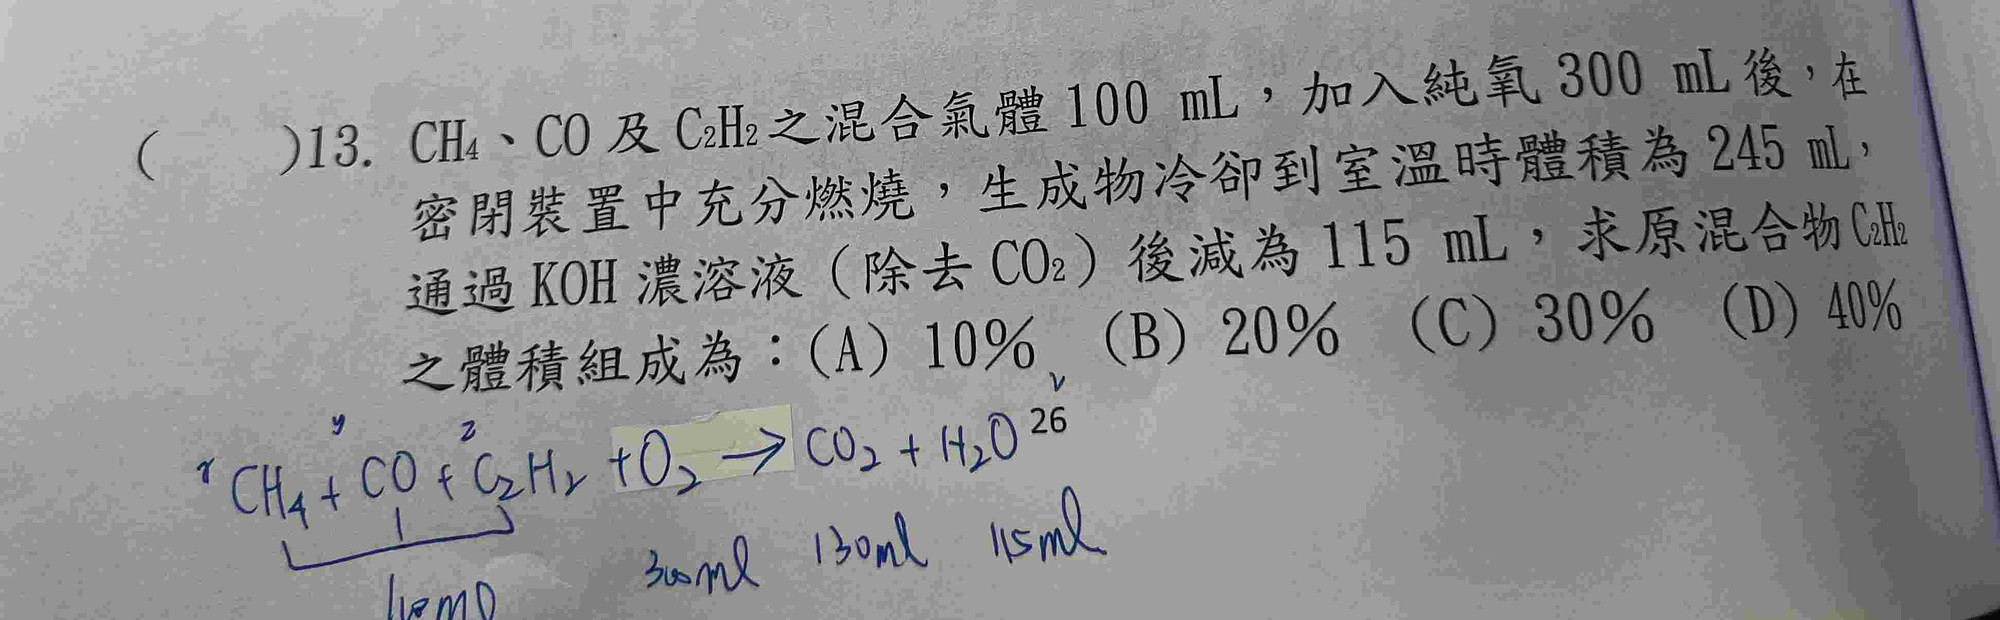 (　　)13. CH₄、CO及C₂H₂之混合氣體100 mL，加入純氧300 mL後，在
密閉裝置中充分燃燒，生成物冷卻到室溫時體積為245 mL，
通過KOH濃溶液（除去CO₂）後減為115 mL，求原混合物C₂H₂
之體積組成為：(A) 10% (B) 20% (C) 30% (D) 40%
y z 26
x CH₄ + CO + C₂H₂ + O₂ → CO₂ + H₂O
300ml 130ml 115ml